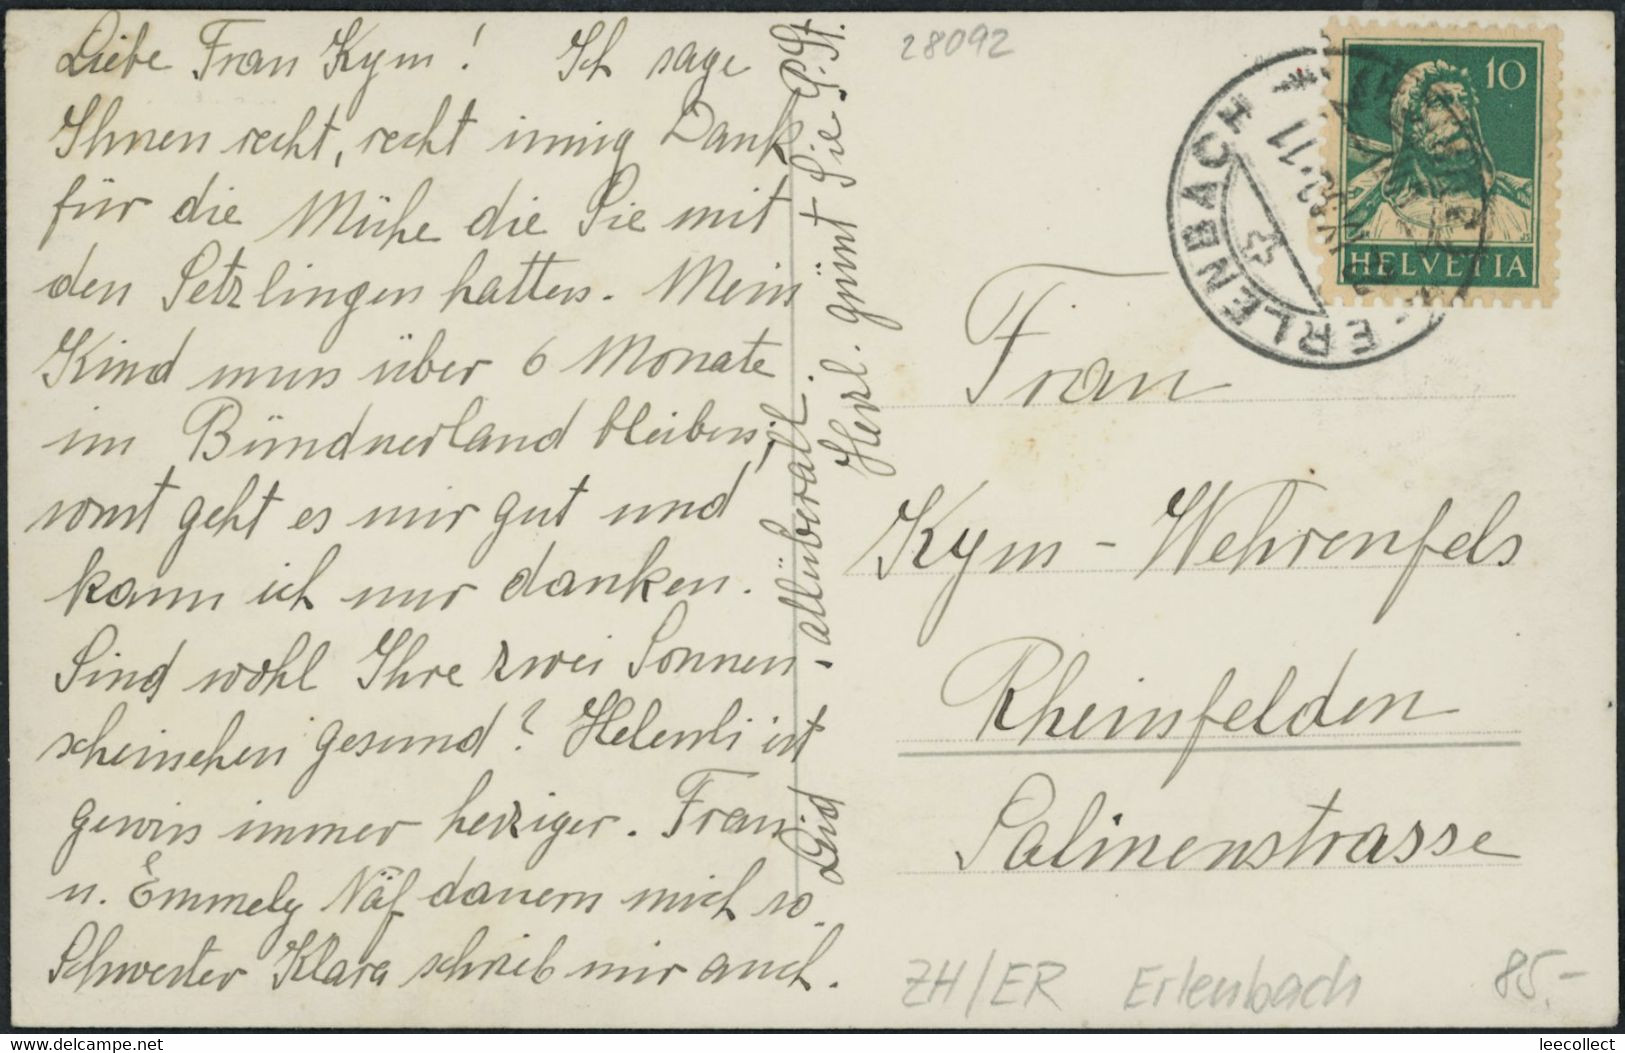 Liebe Frau Kym! Ich sage
Ihnen recht, recht innig Dank
für die Mühe die Sie mit
den Setzlingen hatten. Mein
Kind muss über 6 Monate
im Bündnerland bleiben,
sonst geht es mir gut und
kann ich nur danken.
Sind wohl Ihre zwei Sonnen-
scheinchen gesund? Helenli ist
gewiss immer herziger. Frau
u. Emmely Näf dauern mich so.
Schwester Klara schrieb mir auch.
Leid allüberall.
Herzl. grüsst Sie P. St.
28092
10
HELVETIA
ERLENBACH
Frau
Kym-Wehrenfels
Rheinfelden
Salinenstrasse
ZH/ER Erlenbach 85.-
delcampe.net
leecollect